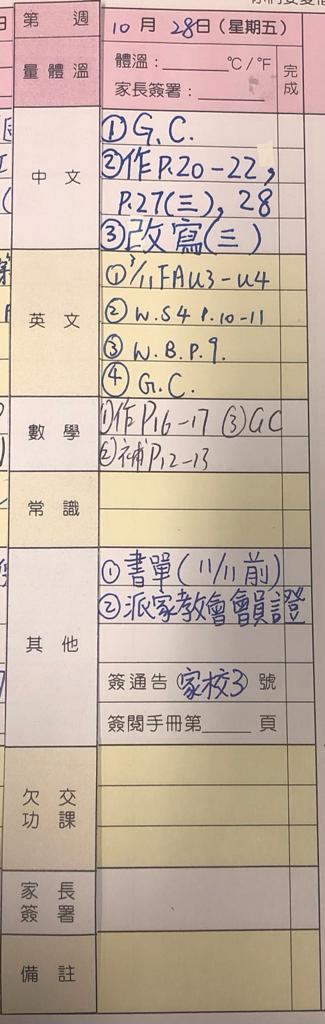 第 週
10月28日(星期五)
量體溫
體溫:______℃/℉
家長簽署:______
完成
中文
①G.C.
②作P.20-22,
P.27(三), 28
③改寫(三)
英文
①3/11 FA U3-U4
②W.S4 P.10-11
③W.B.P.9.
④G.C.
數學
①作P.16-17 ③GC
②補P.12-13
常識
其他
①書單(11/11前)
②派家教會會員證
簽通告 家校3 號
簽閱手冊第____頁
欠交功課
家長簽署
備註